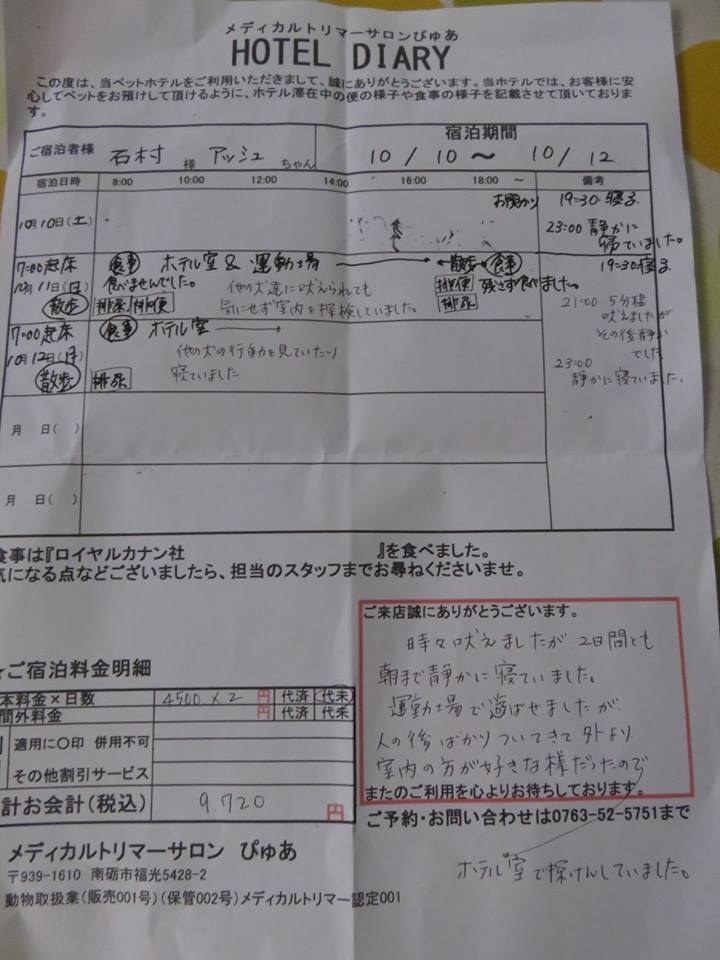 メディカルトリマーサロンぴゅあ
HOTEL DIARY
この度は、当ペットホテルをご利用いただきまして、誠にありがとうございます。当ホテルでは、お客様に安
心してペットをお預けして頂けるように、ホテル滞在中の便の様子や食事の様子を記載させて頂いておりま
す。
ご宿泊者様 石村 様 アッシュ ちゃん
宿泊期間
10 / 10 〜 10 / 12
宿泊日時 8:00 10:00 12:00 14:00 16:00 18:00 〜 備考
10月10日(土) お預かり 19:30 寝る
23:00 静かに
寝ていました。
7:00起床 食事 ホテル室 & 運動場 散歩 食事 19:30寝る
10月11日(日) 食べませんでした。 他の犬達に吠えられても 排便 残さず食べました。
散歩 排尿 排便 気にせず室内を探検していました。 排尿
21:00 5分程
吠えましたが
その後静か
でした
7:00起床 食事 ホテル室
10月12日(月) 他の犬の行動を見ていたり
散歩 排尿 寝ていました
23:00
静かに寝ていました.
月 日( )
月 日( )
食事は『ロイヤルカナン社 』を食べました。
気になる点などございましたら、担当のスタッフまでお尋ねくださいませ。
ご宿泊料金明細
本料金×日数 4500×2 円 代済 代未
間外料金 円 代済 代未
適用に○印 併用不可
その他割引サービス
計お会計(税込) 9.720 円
ご来店誠にありがとうございます。
時々吠えましたが 2日間とも
朝まで静かに寝ていました。
運動場で遊ばせましたが
人の後ばかりついてきて外より
室内の方が好きな様だったので
またのご利用を心よりお待ちしております。
ご予約・お問い合わせは0763-52-5751まで
ホテル室で探けんしていました。
メディカルトリマーサロン ぴゅあ
〒939-1610 南砺市福光5428-2
動物取扱業(販売001号)(保管002号)メディカルトリマー認定001